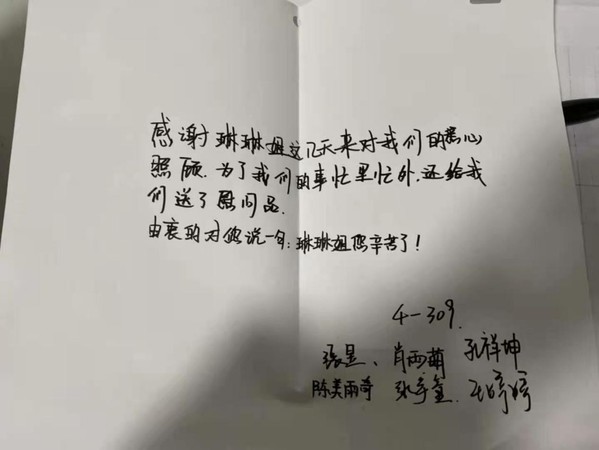 感谢琳琳姐这几天来对我们的悉心
照顾.为了我们的事忙里忙外.还给我
们送了慰问品.
由衷的对您说一句:琳琳姐您辛苦了!
4-309.
张昰、肖雨萌 孔祥坤
陈美雨奇 张 婷婷